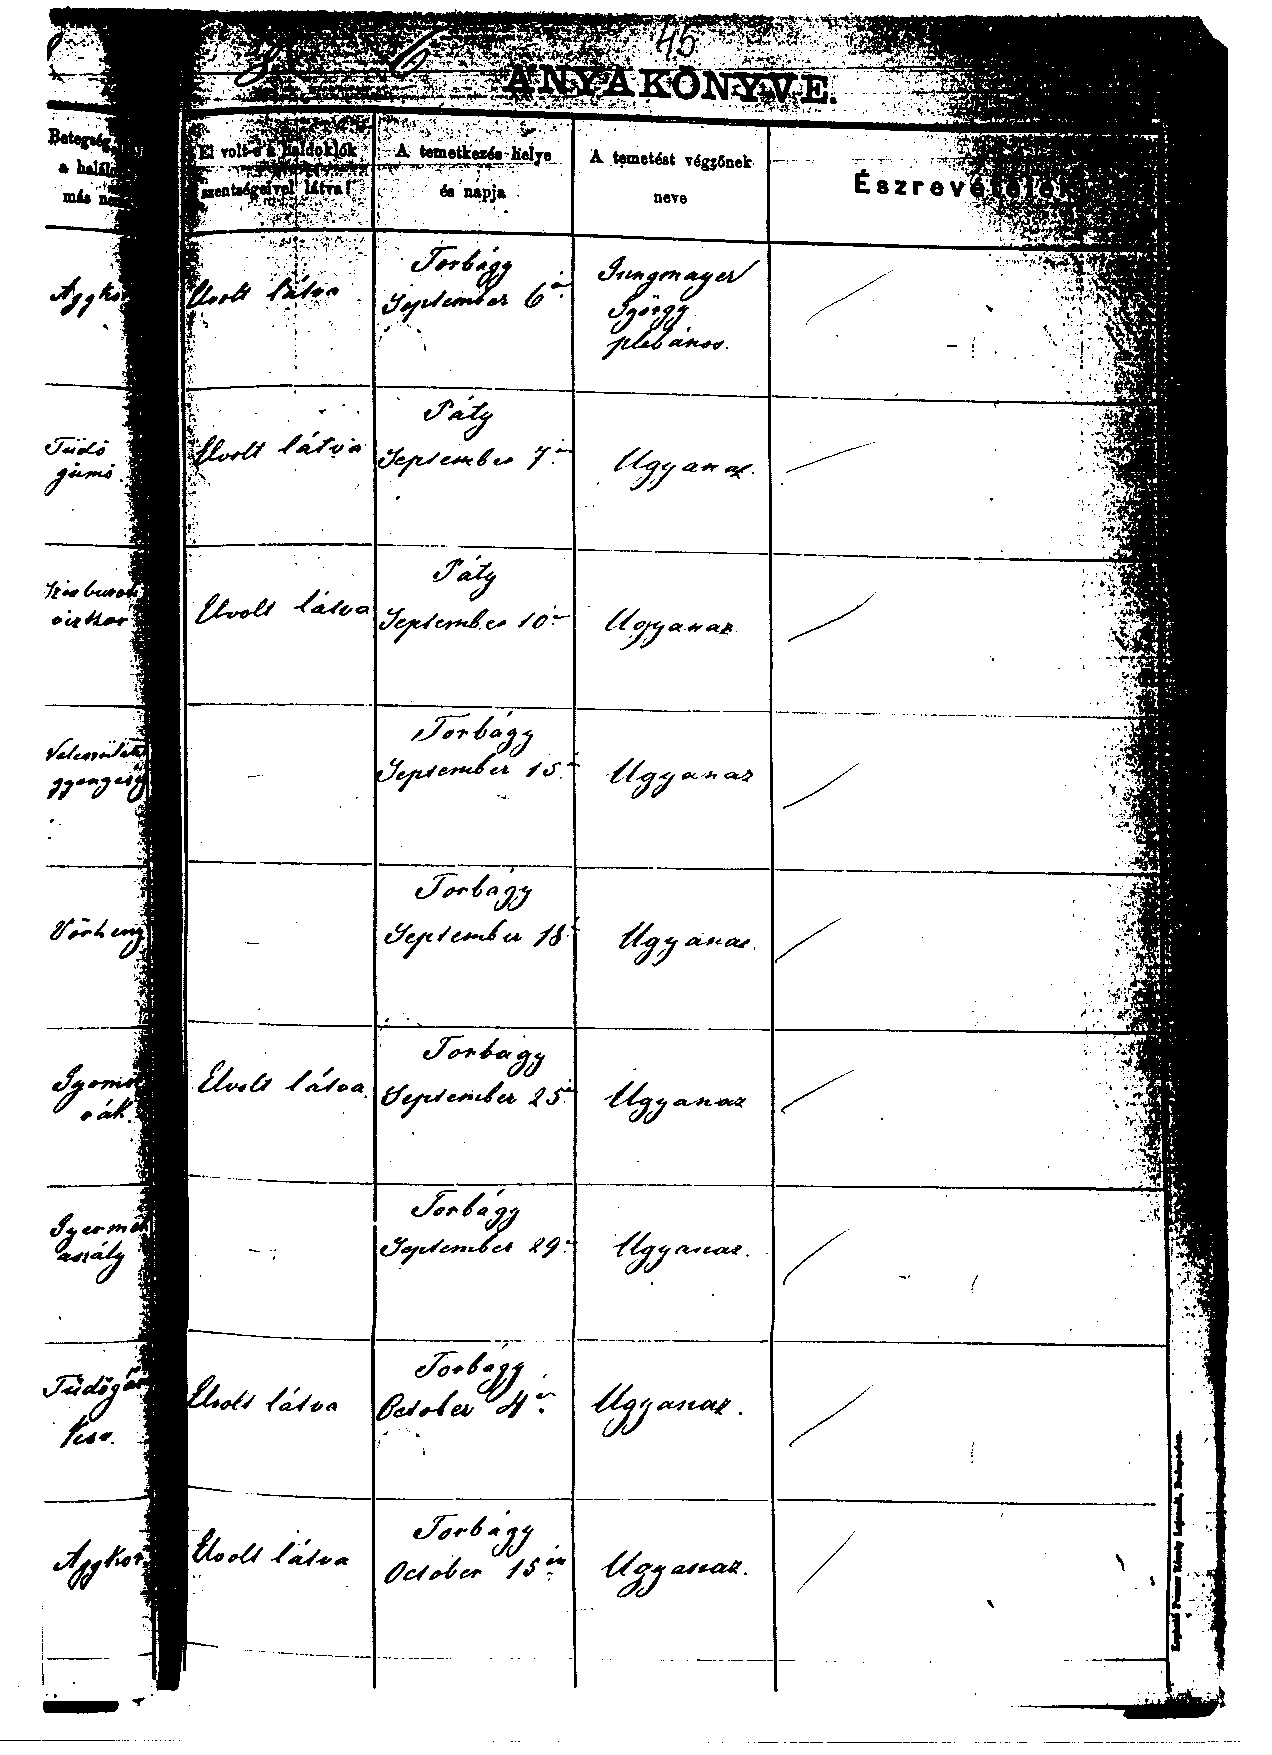 45
ANYAKÖNYVE.
Betegség
a halál
más nem
El volt-e a haldoklók
szentségeivel látva?
A temetkezés helye
és napja
A temetést végzőnek
neve
Észrevételek
Aggkor
Elvolt látva
Torbágy
September 6án
Jungmayer
György
plebános.
Tüdő
gümő.
Elvolt látva
Páty
September 7én
Ugyanaz.
Elvolt látva
Páty
September 10én
Ugyanaz
gyengeség
–
Torbágy
September 15én
Ugyanaz
Vörheny
–
Torbágy
September 18án
Ugyanaz.
Gyomor
rák.
Elvolt látva.
Torbágy
September 25én
Ugyanaz
Gyermek
aszály
–
Torbágy
September 29én
Ugyanaz.
Tüdőgüm
kór.
Elvolt látva
Torbágy
October 4én
Ugyanaz.
Aggkor.
Elvolt látva
Torbágy
October 15én
Ugyanaz.